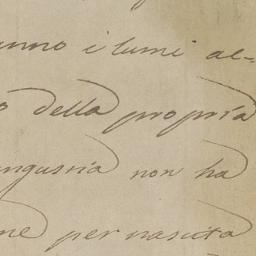 anno i lumi al-
o della propria
angustia non ha
ne per nascita